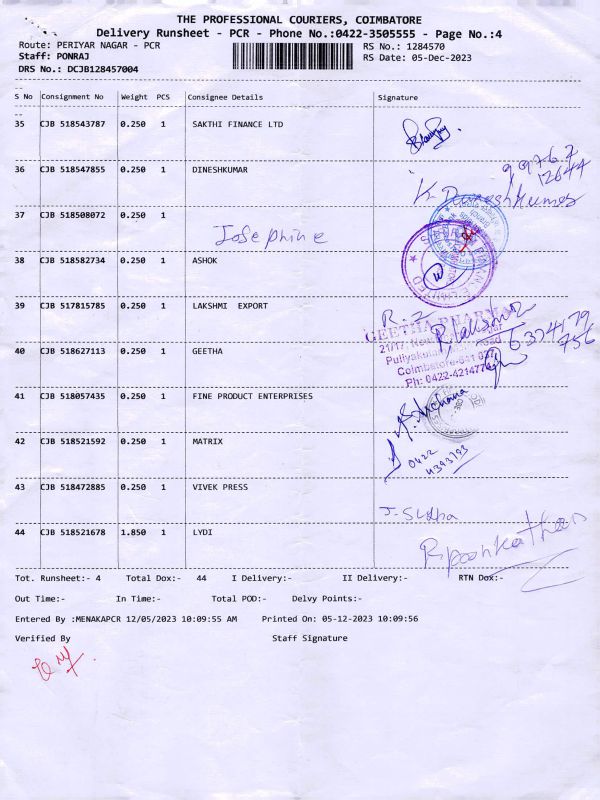 THE PROFESSIONAL COURIERS, COIMBATORE
Delivery Runsheet - PCR - Phone No.:0422-3505555 - Page No.:4
Route: PERIYAR NAGAR - PCR
RS No.: 1284570
Staff: PONRAJ
RS Date: 05-Dec-2023
DRS No.: DCJB128457004
S No Consignment No Weight PCS Consignee Details Signature
35 CJB 518543787 0.250 1 SAKTHI FINANCE LTD
36 CJB 518547855 0.250 1 DINESHKUMAR
99767
12644
K. Dineshkumar
37 CJB 518508072 0.250 1
Josephine
38 CJB 518582734 0.250 1 ASHOK
39 CJB 517815785 0.250 1 LAKSHMI EXPORT
GEETHA PHARMA
21/17, New
Coimbatore-641
Ph: 0422-421477
6374179
756
40 CJB 518627113 0.250 1 GEETHA
41 CJB 518057435 0.250 1 FINE PRODUCT ENTERPRISES
Archana
42 CJB 518521592 0.250 1 MATRIX
0422
4393193
43 CJB 518472885 0.250 1 VIVEK PRESS
J. Sudha
44 CJB 518521678 1.850 1 LYDI
Tot. Runsheet:- 4 Total Dox:- 44 I Delivery:- II Delivery:- RTN Dox:-
Out Time:- In Time:- Total POD:- Delvy Points:-
Entered By :MENAKAPCR 12/05/2023 10:09:55 AM Printed On: 05-12-2023 10:09:56
Verified By Staff Signature